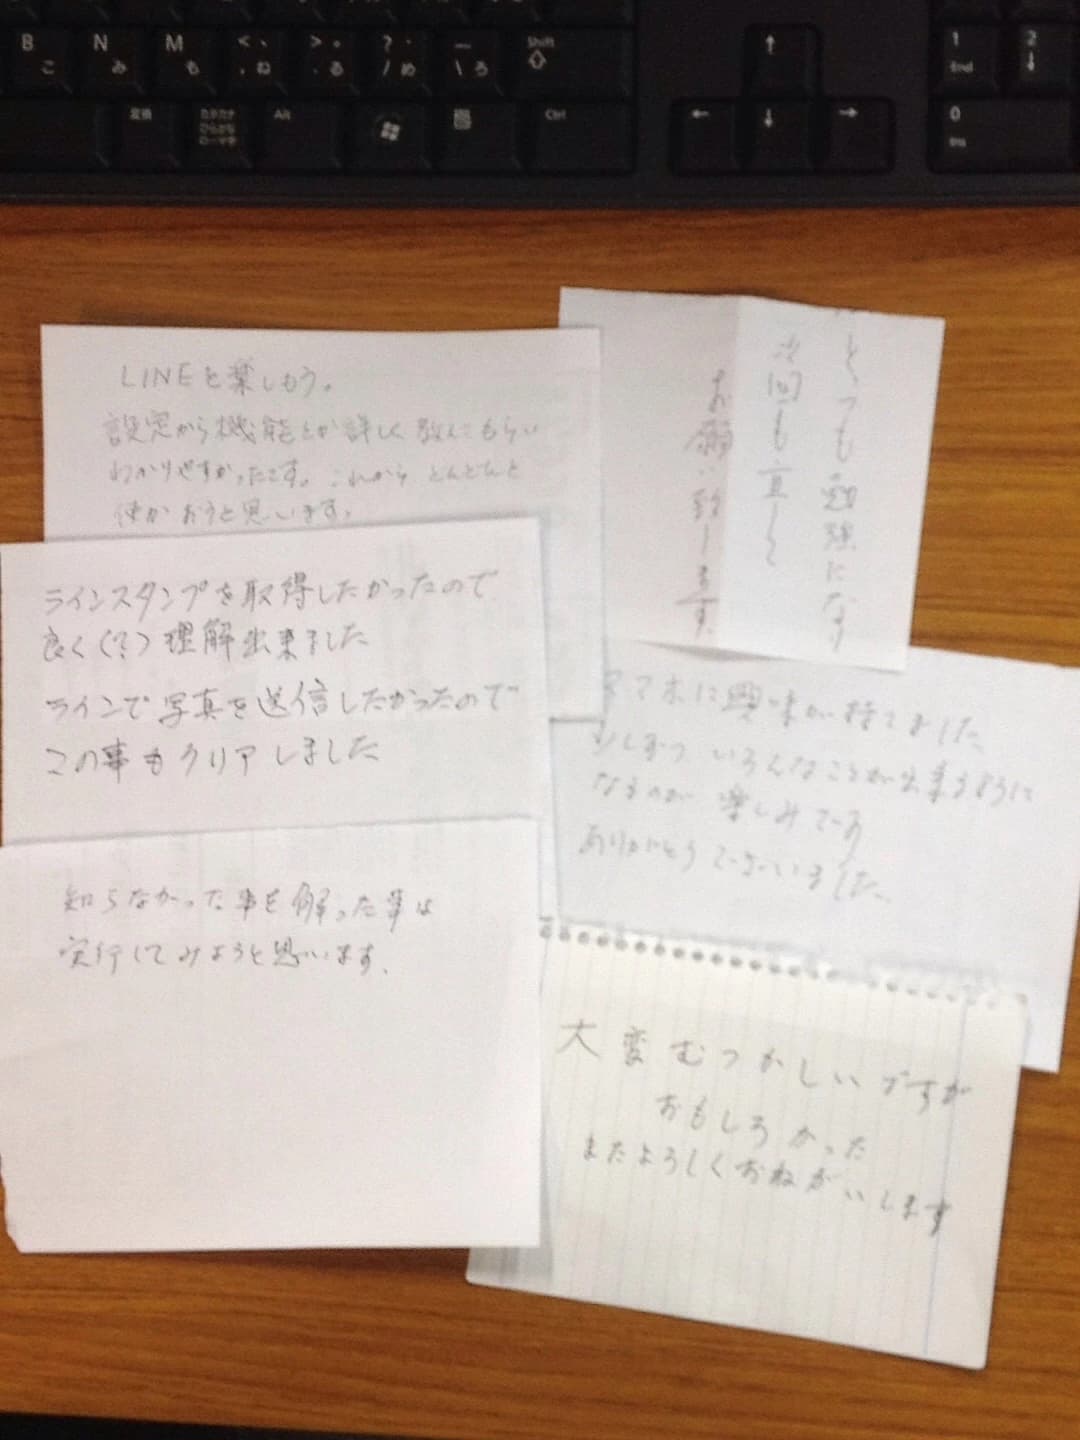 B
こ
N
み
M
も
< 、
, ね
> 。
. る
? ・
/ め
\ ろ
Shift
1
End
2
変換
カタカナ
ひらがな
ローマ字
Alt
Ctrl
0
Ins
LINEを楽しもう。
設定から機能とか詳しく教えてもらい
わかりやすかったです。これから どんどんと
使かおうと思います。
とっても勉強になり
次回も宜しく
お願い致します。
ラインスタンプを取得したかったので
良く(?)理解出来ました
ラインで写真を送信したかったので
この事もクリアしました
スマホに興味が持てました
少しずつ いろんなことが出来るように
なるのが 楽しみです
ありがとうございました。
知らなかった事を解った事は
実行してみようと思います。
大変むつかしいですが
おもしろかった
またよろしくおねがいします